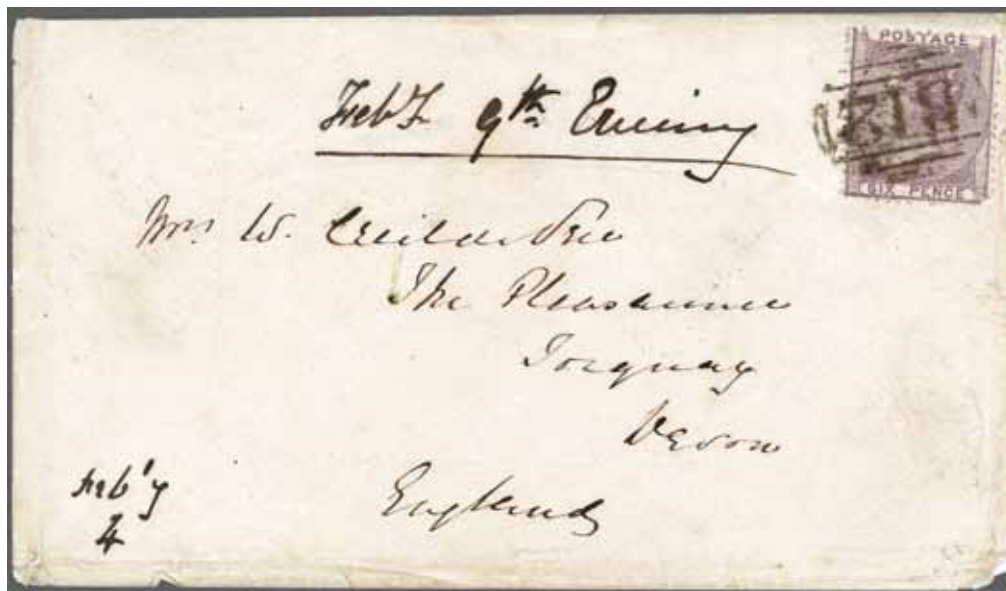 POSTAGE
SIX PENCE
Feby 9th Evening
Mrs W.
The Pleasaunce
Torquay
Devon
England
Feb'y
4